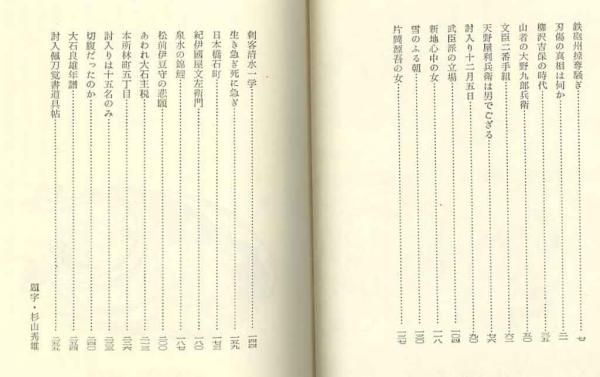 鉄砲州掠奪騒ぎ……七
刃傷の真相は何か……二一
柳沢吉保の時代……三五
山者の大野九郎兵衛……五〇
文臣二番手組……六二
天野屋利兵衛は男でござる……七六
討入り十二月五日……九〇
武臣派の立場……一〇四
新地心中の女……一一八
雪のふる朝……一三〇
片岡源吾の女……一三七
刺客清水一学……一四四
生き急ぎ死に急ぎ……一五九
日本橋石町……一七三
紀伊國屋文左衛門……一八〇
泉水の錦鯉……一八七
松前伊豆守の悲願……二〇〇
あわれ大石主税……二一三
本所林町五丁目……二二六
討入りは十五名のみ……二三三
切腹だったのか……二四〇
大石良雄年譜……二五四
討入佩刀覚書道具帖……二五五
題字・杉山秀雄